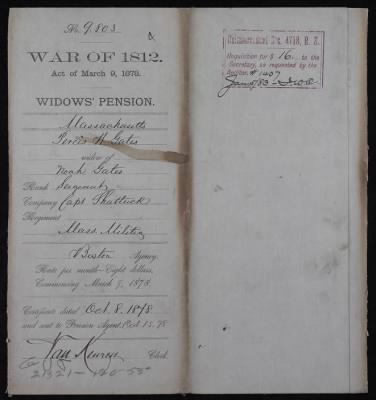 No. 9,803
WAR OF 1812.
Act of March 9, 1878.
WIDOWS' PENSION.
Massachusetts
H. Gates
widow of
Noah Gates
Rank Sergeant
Company Capt. Shattuck
Regiment
Mass. Militia
Boston Agency.
Rate per month—Eight dollars,
Commencing March 9, 1878.
Certificate dated Oct. 8. 1878
and sent to Pension Agent, Oct. 15. 78
Van Keuren Clerk.
Reimbursement Sec. 4718, R. S.
Requisition for $ 16. to the
Secretary, as requested by the
Auditor. # 1407